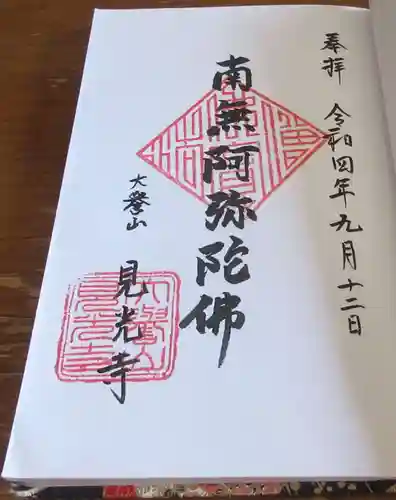 奉拝
令和四年九月十二日
南無阿弥陀佛
大誉山
見光寺